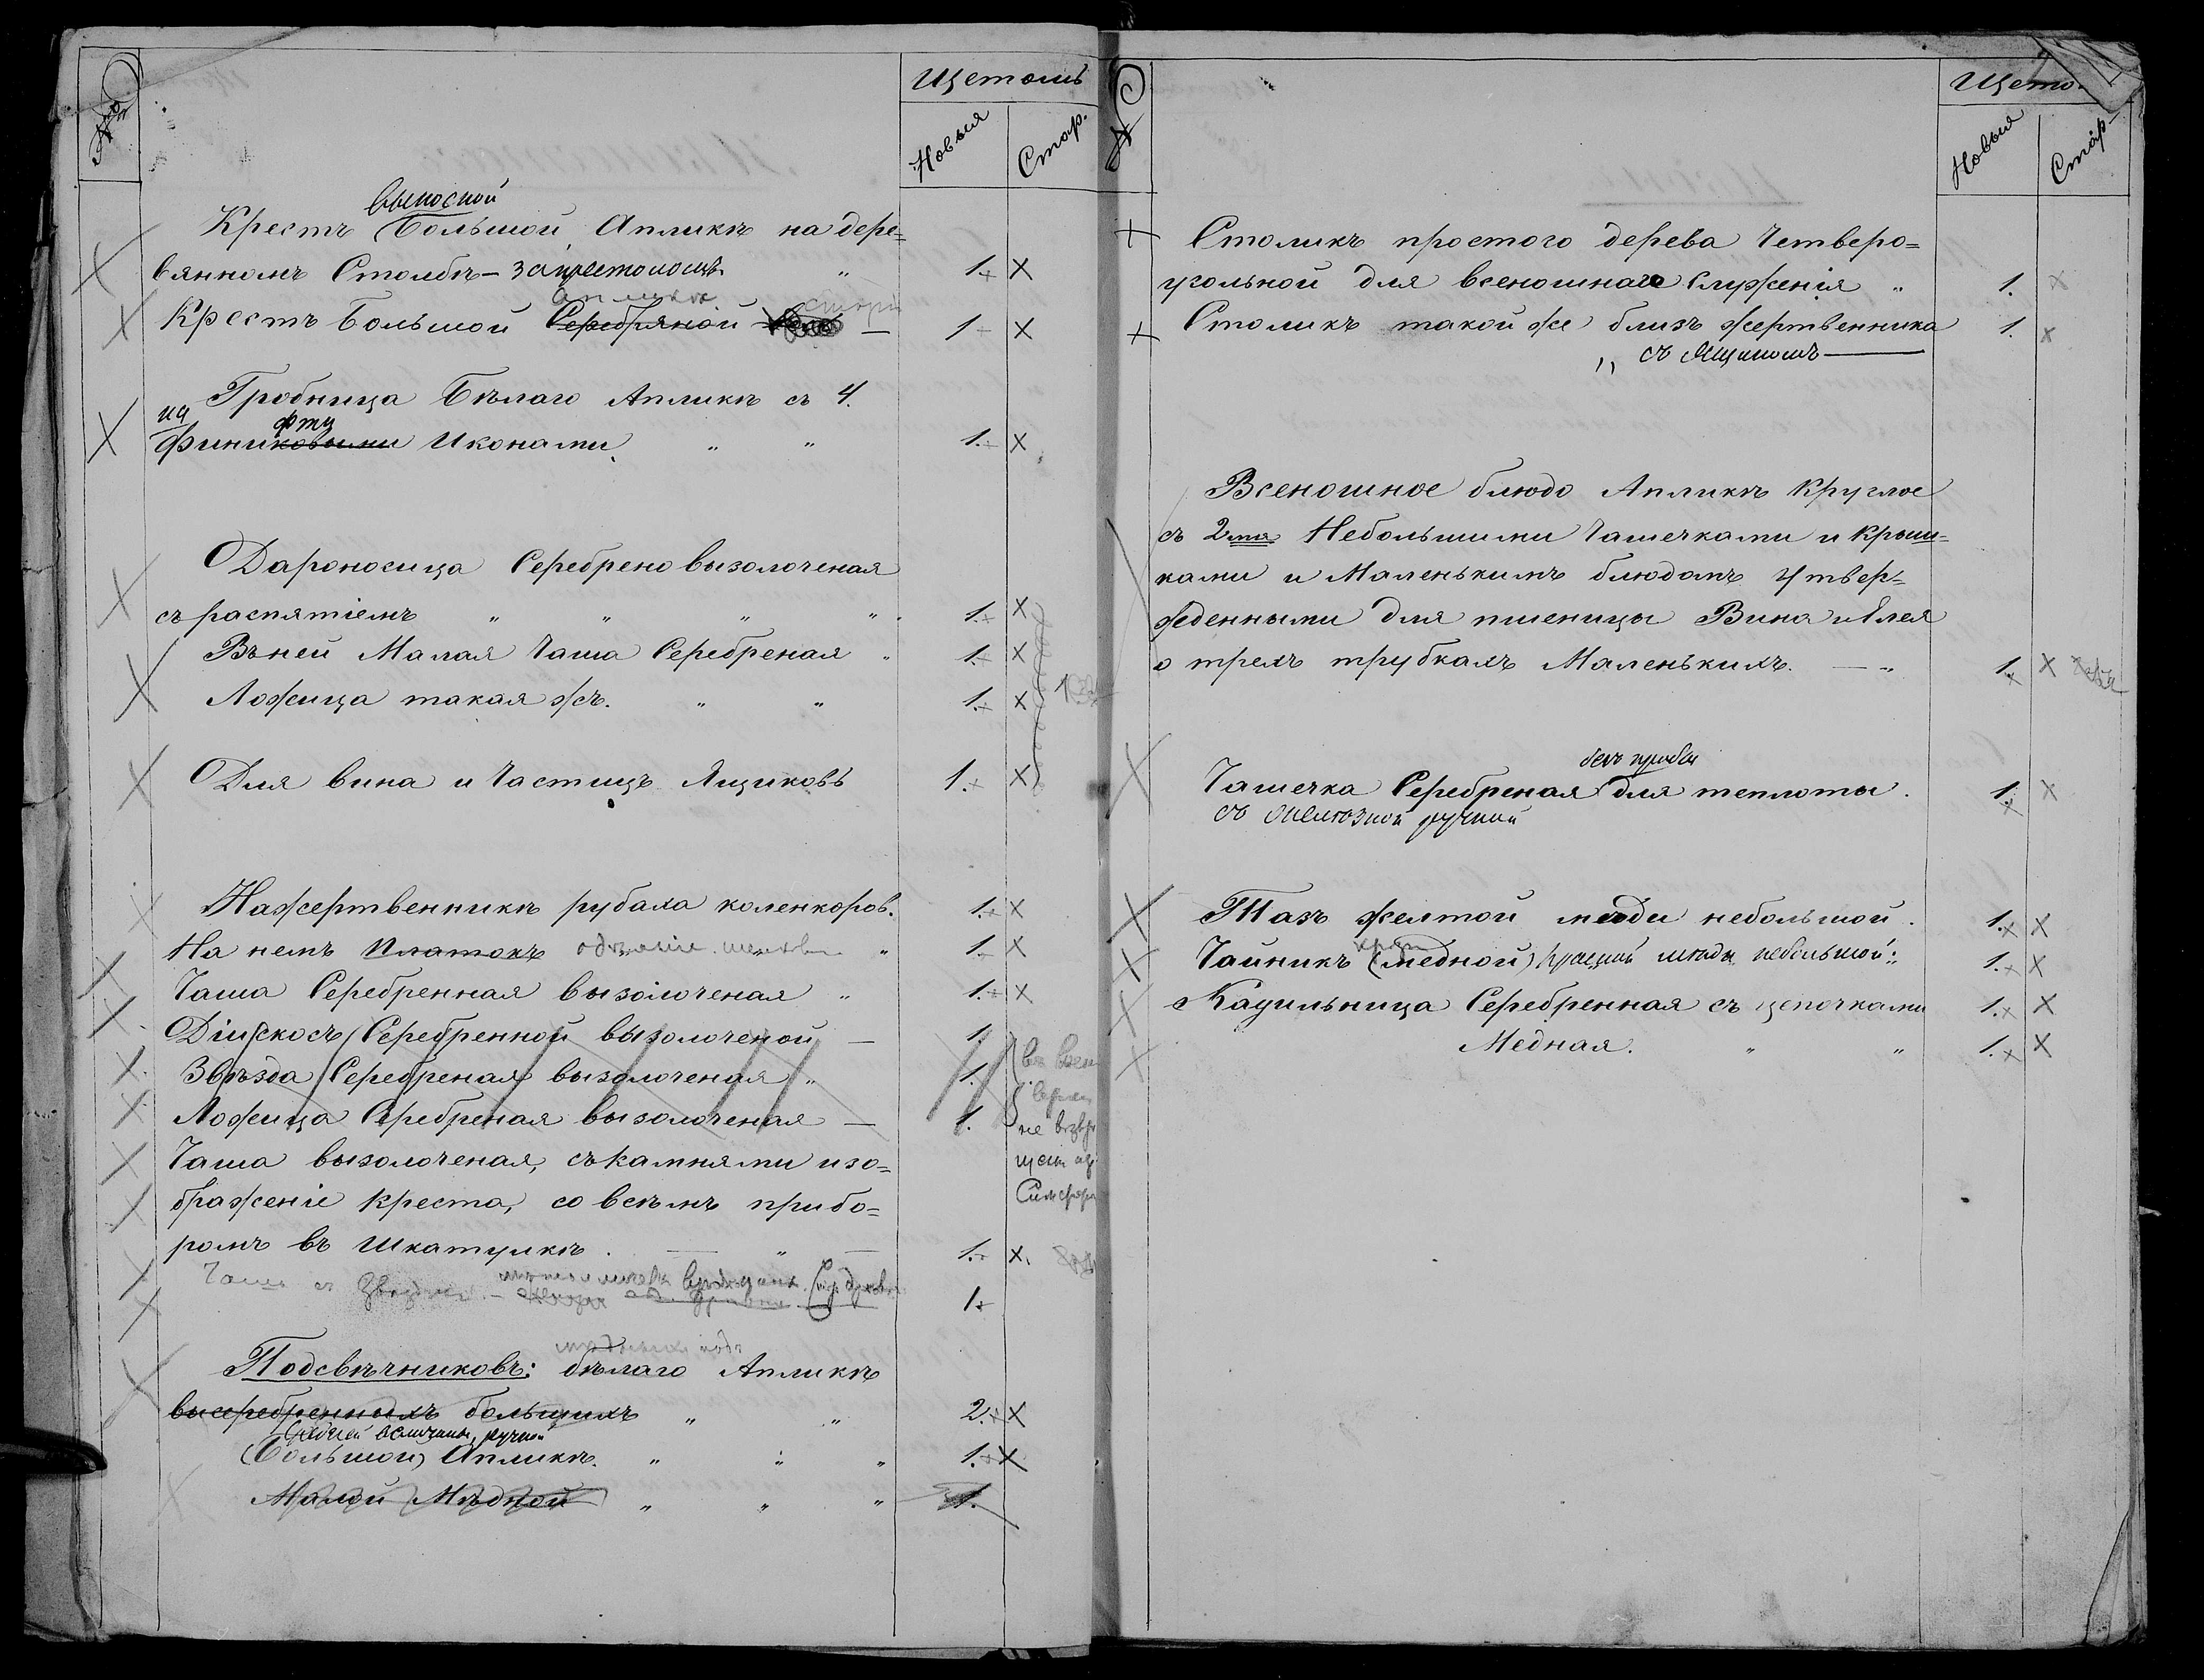 №
Щетомъ
Новыя
Стар.
выносной
Крестъ Большой Апликѣ на дере-
вянномъ Столбѣ – запрестоломъ " 1. x
аплике
Крестъ большой Серебряной — 1 x
Гробница бѣлаго Апликѣ съ 4.
на фти
финиковыми Иконами. " " 1. x
Дароносица Серебреновызолоченая
съ распятіемъ " " " " 1. x
Въ ней Малая Чаша Серебреная " 1. x
Ложица такая жъ. " " 1. x
Для вина и Частицъ Ящиковъ 1. x
На жертвенникѣ рубаха коленкоров. 1. x
На немъ платокъ одѣяніе " 1. x
Чаша Серебренная вызолоченая " 1. x
Діискосъ Серебренной вызолоченой — 1.
Звѣзда Серебреная вызолоченая " 1.
Ложица Серебреная вызолоченая — 1.
не
Чаша вызолоченая, съ камнями изо-
браженіе креста, со всѣмъ прибо-
ромъ въ Шкатулкѣ. — " — 1. x.
Чаша 1.
Подсвѣчниковъ: бѣлаго Апликѣ
высеребренныхъ большихъ " " 2. x
Средней величины, ручной
(Большой) Апликѣ. " " " 1. x
Малой Мѣдной " " " 1.
№
Щето
Новыя
Стар.
Столикъ простого дерева Четверо-
угольной для всеношнаго Служенія " 1. x
Столикъ такой же близъ жертвенника 1. x
" съ Ящикомъ —
Всеношное блюдо Апликѣ Круглое
съ 2мя Небольшими Чашечками и крыш-
ками и Маленькимъ блюдомъ Утвер-
жденными для пшеницы Вина и Елея
о трехъ трубкахъ Маленькихъ. — " 1. x
безъ пробы
Чашечка Серебреная для теплоты. 1. x
съ ручкой
Тазъ желтой меди небольшой. 1. x
Чайникъ (медной) красной мѣди небольшой: 1. x
Кадильница Серебренная съ цепочками 1. x
Медная. " " 1. x